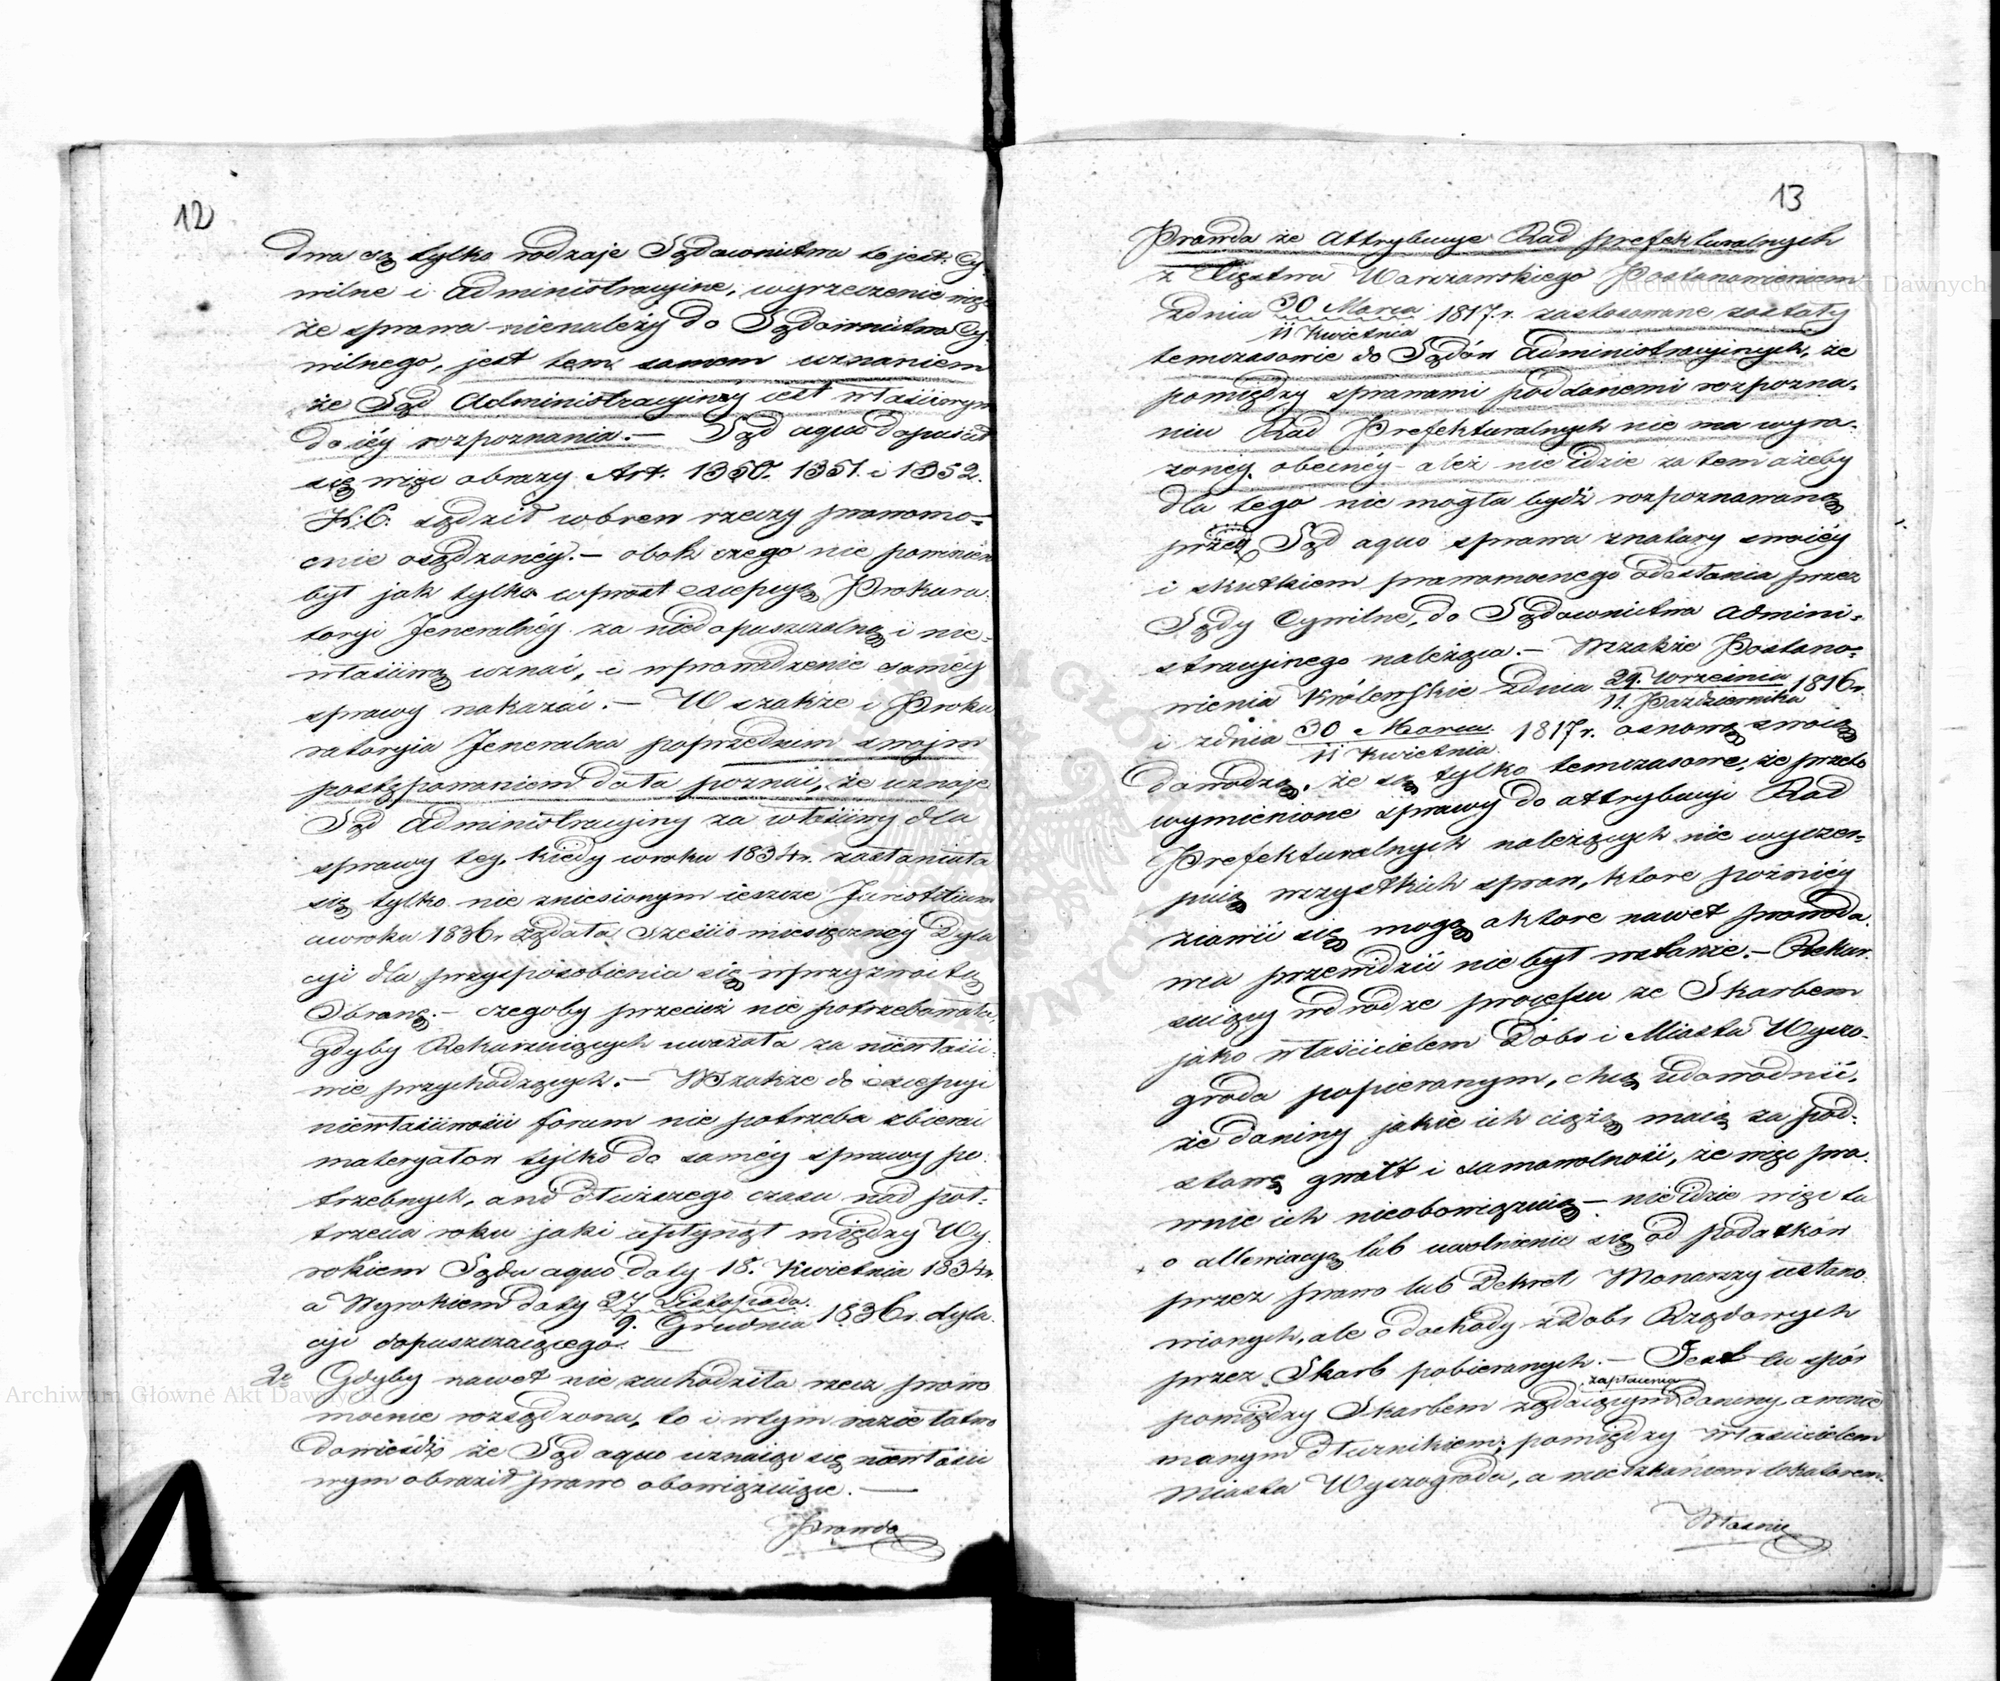 12
dwa są tylko rodzaje Sądownictwa to jest: Cy-
wilne i Administracyjne, wyrzeczenie więc
że sprawa nienależy do Sądownictwa Cy-
wilnego, jest tem samem uznaniem
że Sąd Administracyjny iest właściwym
do iéy rozpoznania. — Sąd aquo dopuścił
się więc obrazy Art. 1350. 1351. i 1352.
K. C. sądził wbrew rzeczy prawomo-
cnie osądzonéy. — obok czego nie powinien
był jak tylko wprost excepcyą Prokura-
toryi Jeneralnéy za niedopuszczalną i nie-
właściwą uznać, i wprowadzenie saméy
sprawy nakazać. — Wszakże i Proku-
ratorya Jeneralna poprzedniem swojm
postępowaniem dała poznać, że uznaje
Sąd Administracyiny za właściwy dla
sprawy tey, kiedy wroku 1834r. zasłaniała
się tylko nie zniesionym ieszcze Juristitium
awroku 1836r żądała sześcio miesięczney Dyla
cyi dla przysposobienia się wprzyzwoitą
Obronę. — czegoby przecież nie potrzebowała,
gdyby Rekurujących uważała za niewłaści-
wie przychodzących. — Wszakże do excepcyi
niewłaściwości forum nie potrzeba zbierać
materyałow tylko do saméy sprawy po-
trzebnych, ani dłuższego czasu nad pół-
trzecia roku jaki upłynął między Wy-
rokiem Sądu aquo daty 18. Kwietnia 1834r.
a Wyrokiem daty 27 Listopada / 9. Grudnia 1836r. dyla
cyi dopuszczaiącego. —
2o Gdyby nawet nie zachodziła rzecz prawo
mocnie rozsądzona, to i wtym razie łatwo
dowieśdź że Sąd aquo uznaiąc się niewłaści
wym obraził prawo obowiązuiące. —
Prawda
13
Prawda że Attrybucye Rad prefekturalnych
z Xięstwa Warszawskiego Postanowieniem
zdnia 30 Marca / 11 Kwietnia 1817r. zastosowane zostały
temczasowie do Sądów Administracyjnych, że
pomiędzy sprawami poddanemi rozpozna-
niu Rad Prefekturalnych nie ma wyra-
zonéy obecnéy — ależ nie idzie za tem ażeby
dla tego nie mogła bydź rozpoznawaną
przez Sąd aquo sprawa znatury swoiéy
i skutkiem prawomocnego odesłania przez
Sądy Cywilne, do Sądownictwa Admini-
stracyjnego należąca. — Wszakże Postano-
wienia Królewskie zdnia 29. Września / 11. Października 1816r.
i zdnia 30 Marca / 11 Kwietnia 1817r. osnową swoią
dowodzą, że są tylko temczasowe, że przeto
wymienione sprawy do attrybucyi Rad
Prefekturalnych należących nie wyczer-
puią wszystkich spraw, ktore późniéy
ziawić się mogą aktore nawet prawoda-
wca przewidzić nie był wstanie. — Rekur-
suiący wdrodze processu ze Skarbem
jako właścicielem Dobr i Miasta Wyszo-
groda popieranym, chcą udowodnić,
że daniny jakie ich ciążą maią za pod-
stawę gwałt i samowolność, że więc pra-
wnie ich nieobowiązuią — nie idzie więc tu
o allewiacyą lub uwolnienie się od podatków
przez prawo lub Dekret Monarszy ustano-
wionych, ale o dochody zdobr Rządowych
przez Skarb pobieranych. — Jest tu spór
pomiędzy Skarbem żądaiącym zapłacenia daniny, a mnie
manym dłużnikiem; pomiędzy właścicielem
Miasta Wyszogroda, a mieszkańcem lokatorem.
Własnie
Archiwum Główne Akt Dawnych
Archiwum Główne Akt Dawnych